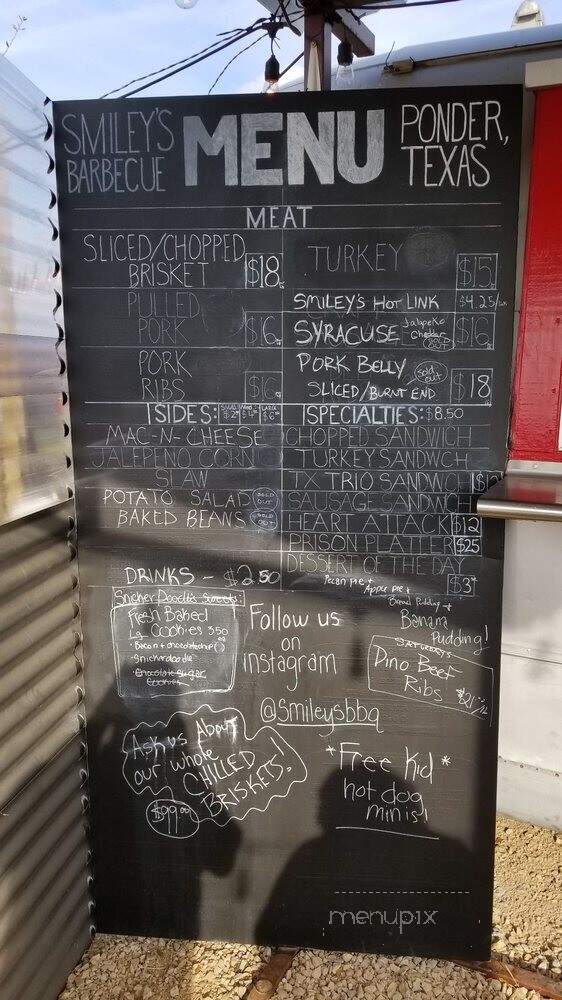 SMILEY'S
BARBECUE
MENU
PONDER,
TEXAS
MEAT
SLICED/CHOPPED
BRISKET
$18
PULLED
PORK
$16
PORK
RIBS
$16
TURKEY
$15
SMILEY'S HOT LINK
$4.25
SYRACUSE
$16
PORK BELLY
Sold out
SLICED/BURNT END
$18
SIDES:
MAC-N-CHEESE
JALEPENO CORN
SLAW
POTATO SALAD
BAKED BEANS
SPECIALTIES: $8.50
CHOPPED SANDWICH
TURKEY SANDWCH
TX TRIO SANDWCH
SAUSAGE SANDWCH
HEART ATTACK $12
PRISON PLATTER $25
DESSERT OF THE DAY
$3
Pecan pie +
Apple pie +
Bread Pudding +
Banana
Pudding!
DRINKS - $2.50
Snicker Doodle Sweets:
Fresh Baked
Lg Cookies 3.50
Snickerdoodle
Chocolate Sugar
Cookies
Follow us
on
instagram
@Smileysbbq
SATURDAYS
Dino Beef
Ribs
Ask us About
our whole
CHILLED
BRISKETS!
$99.00
*Free Kid*
hot dog
minis!
menupix